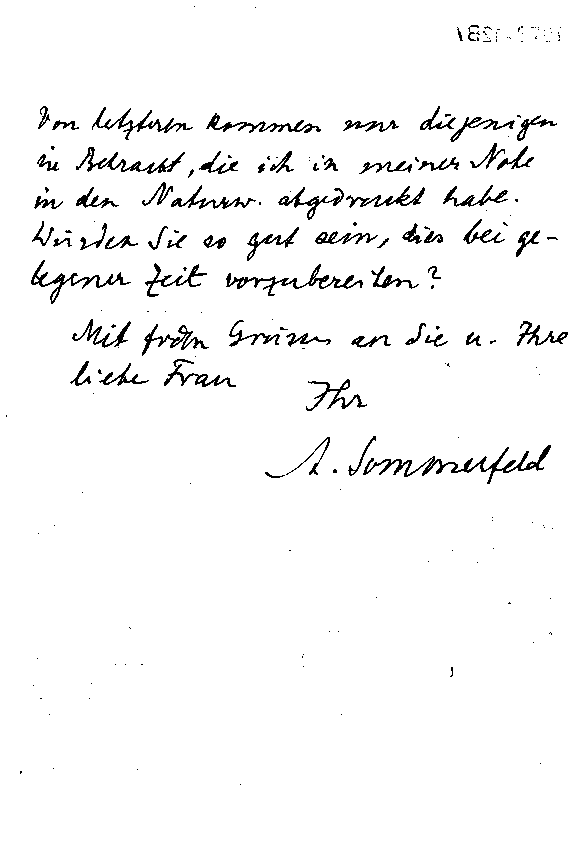 Von letzteren kommen nur diejenigen
in Betracht, die ich in meiner Note
in den Naturw. abgedruckt habe.
Würden Sie so gut sein, dies bei ge-
legener Zeit vorzubereiten?
Mit frdln Grüssen an Sie u. Ihre
liebe Frau
Ihr
A. Sommerfeld